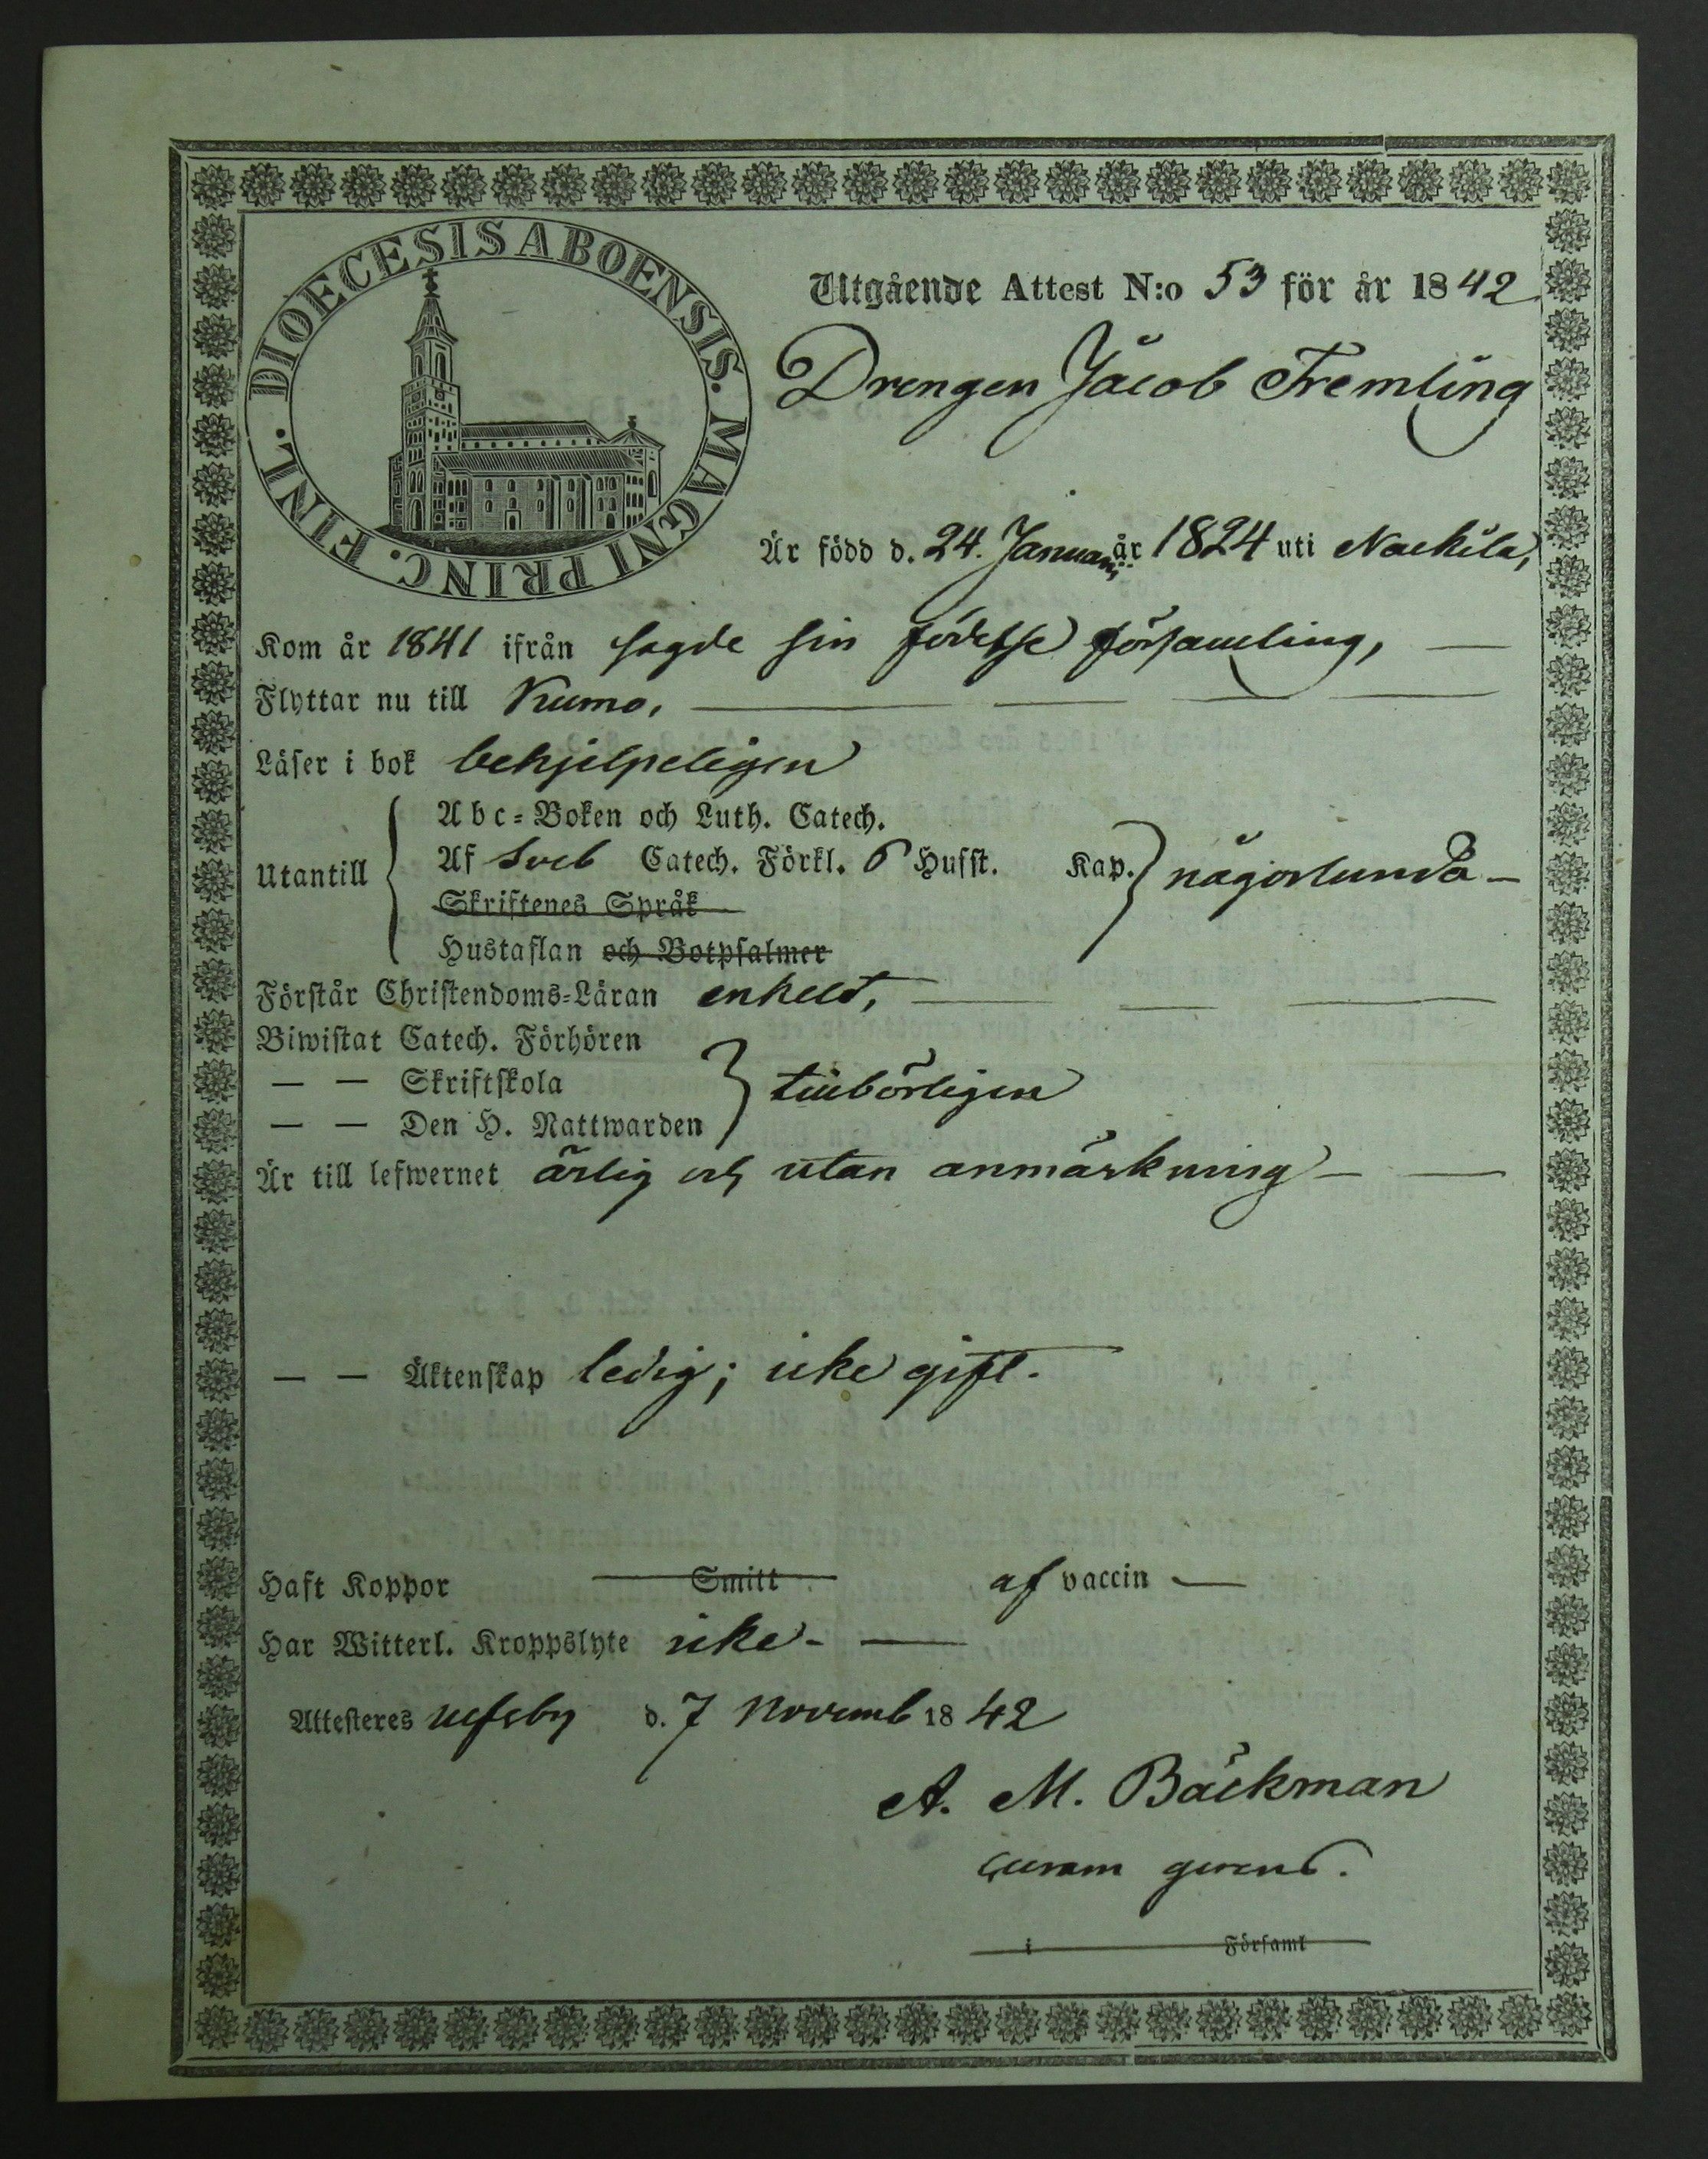 DIOECESIS ABOENSIS. MAGNI PRINC. FINL.
Utgående Attest N:o 53 för år 1842
Drengen Jacob Fremling
Är född d. 24. Januari år 1824 uti Nackila,
Kom år 1841 ifrån sagde sin födelse församling,
Flyttar nu till Kumo,
Läser i bok behjelpeligen
Abc-Boken och Luth. Catech.
Utantill Af Sveb Catech. Förkl. 6 Hufst. Kap. någorlunda
Skriftenes Språk
Hustaflan och Botpsalmer
Förstår Christendoms-Läran enkelt,
Biwistat Catech. Förhören
— — Skriftskola tillbörligen
— — Den H. Nattwarden
Är till lefwernet ärlig och utan anmärkning
— — Äktenskap ledig; icke gift.
Haft Koppor Smitt af vaccin
Har Witterl. Kroppslyte icke
Attesteres d. 7 Novemb 1842
A. M. Bäckman
curam gerens.
i Församl